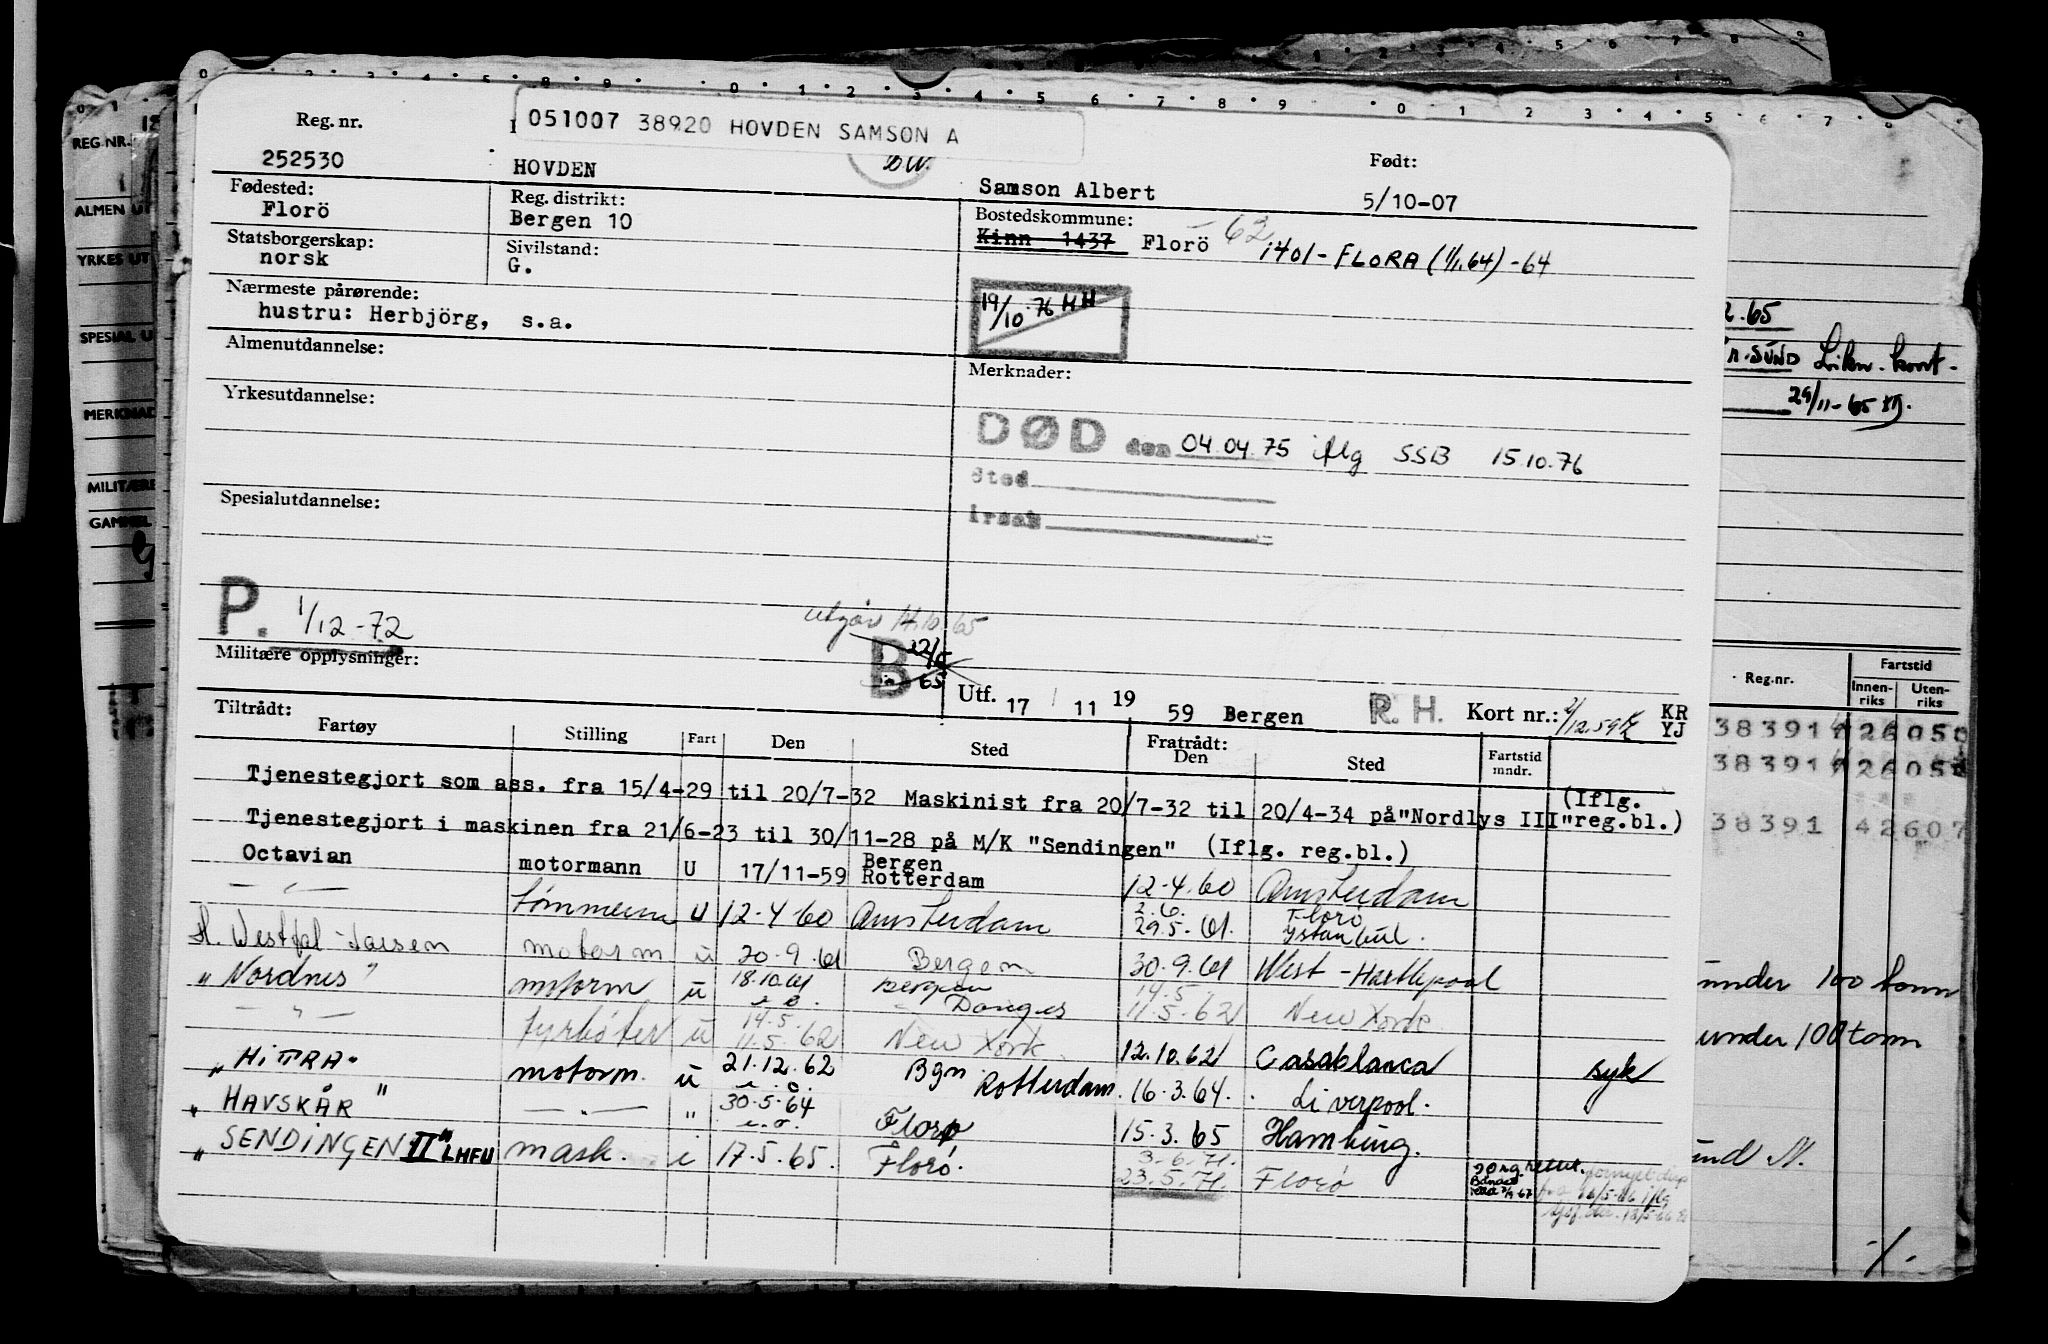 051007 38920 HOVDEN SAMSON A
Reg. nr.
252530
HOVDEN
Samson Albert
Født:
5/10-07
Fødested:
Florö
Reg. distrikt:
Bergen 10
Bostedskommune:
Kinn 1437 Florö -62 1401-FLORA (1/1.64) -64
Statsborgerskap:
norsk
Sivilstand:
G.
Nærmeste pårørende:
hustru: Herbjörg, s.a.
19/10.76 HH
Almenutdannelse:
Merknader:
Yrkesutdannelse:
DØD den 04.04.75 iflg SSB 15.10.76
Sted
Årsak
Spesialutdannelse:
P. 1/12-72
utgår 14.10.65
B 22/6 65
Militære opplysninger:
Utf. 17 / 11 19 59 Bergen R.H. Kort nr.: KR YJ
Tiltrådt:
Fartøy Stilling Fart Den Sted Fratrådt: Den Sted Fartstid mndr.
Tjenestegjort som ass. fra 15/4-29 til 20/7-32 Maskinist fra 20/7-32 til 20/4-34 på "Nordlys III" (Iflg. reg.bl.)
Tjenestegjort i maskinen fra 21/6-23 til 30/11-28 på M/K "Sendingen" (Iflg. reg.bl.)
Octavian motormann U 17/11-59 Bergen Rotterdam 12-4.60 Amsterdam
— " — tømmerm U 12-4 60 Amsterdam 2.6. 29.5.61. Florö Ystanbul.
H. Westfal-Larsen motorm u 20.9.61 Bergen 30.9.61 West-Hartlepool
"Nordnes" motorm u 18.10.61 e.o. Bergen Donges 14.5. 11.5.62 New York
— " — fyrbøter u 14.5. 11.5.62 New York 12.10.62 Casablanca syk
"HITRA" motorm. u 21.12.62 e.o. Bgn Rotterdam. 16.3.64. Liverpool.
"HAVSKÅR" — " — " 30.5.64 e.o. Florø 15.3.65 Hamburg.
"SENDINGEN II" LHFU mask. i 17.5.65. Florö. 3.6.71. 23.5.71. Florö
REG.NR.
ALMEN UT
YRKES UT
SPESIAL U
MERKNAD
MILITÆRE
GAMMEL
2.65
SUND Likn. kort-
29/11-65
Reg.nr. Fartstid
Innenriks Utenriks
under 100 tonn
under 100 tonn